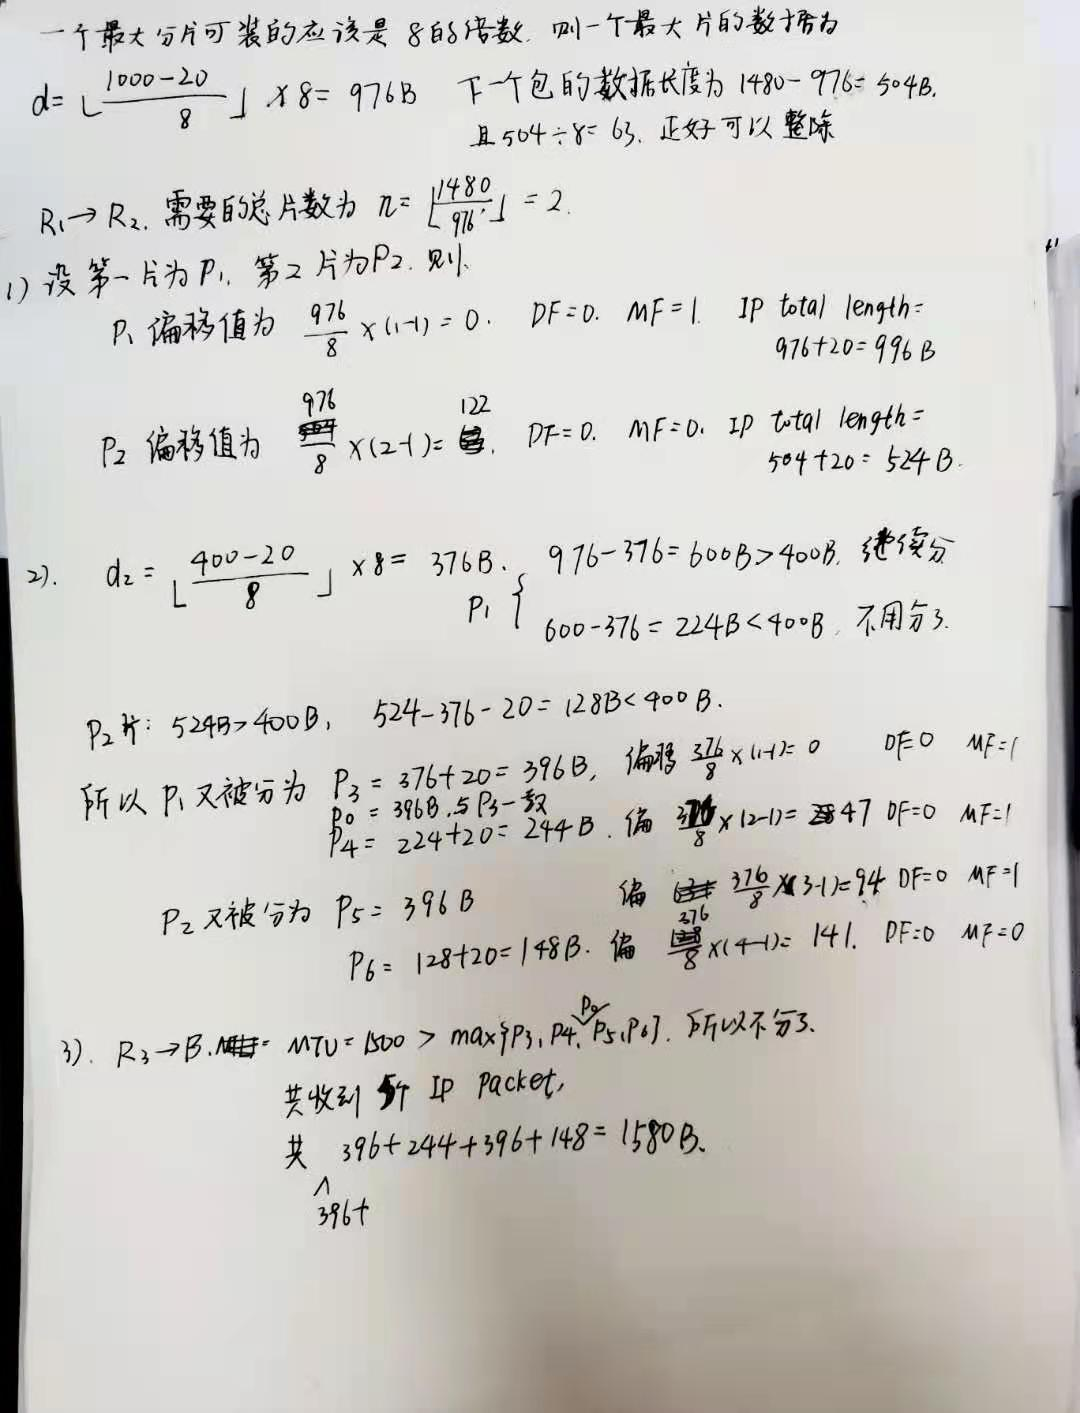 一个最大分片可装的应该是8的倍数. 则一个最大片的数据为
d=⌊(1000-20)/8⌋×8=976B 下一个包的数据长度为1480-976=504B.
且504÷8=63. 正好可以整除
R1→R2. 需要的总片数为 n=⌊1480/976⌋=2.
1) 设第一片为P1, 第2片为P2. 则.
P1偏移值为 976/8×(1-1)=0. DF=0. MF=1. IP total length=
976+20=996B
P2偏移值为 976/8×(2-1)=122. DF=0. MF=0. IP total length=
504+20=524B.
2). d2=⌊(400-20)/8⌋×8=376B. P1{ 976-376=600B>400B, 继续分
600-376=224B<400B, 不用分了.
P2片: 524B>400B, 524-376-20=128B<400B.
所以P1又被分为 P3=376+20=396B, 偏移 376/8×(1-1)=0 DF=0 MF=1
P0=396B.与P3一致
P4=224+20=244B. 偏 376/8×(2-1)=47 DF=0 MF=1
P2又被分为 P5=396B 偏 376/8×(3-1)=94 DF=0 MF=1
P6=128+20=148B. 偏 376/8×(4-1)=141. DF=0 MF=0
3). R3→B. MTU=1500 > max{P3, P4, P0, P5, P6}. 所以不分了.
共收到5个 IP Packet,
共 396+244+396+148=1580B.
∧
396+